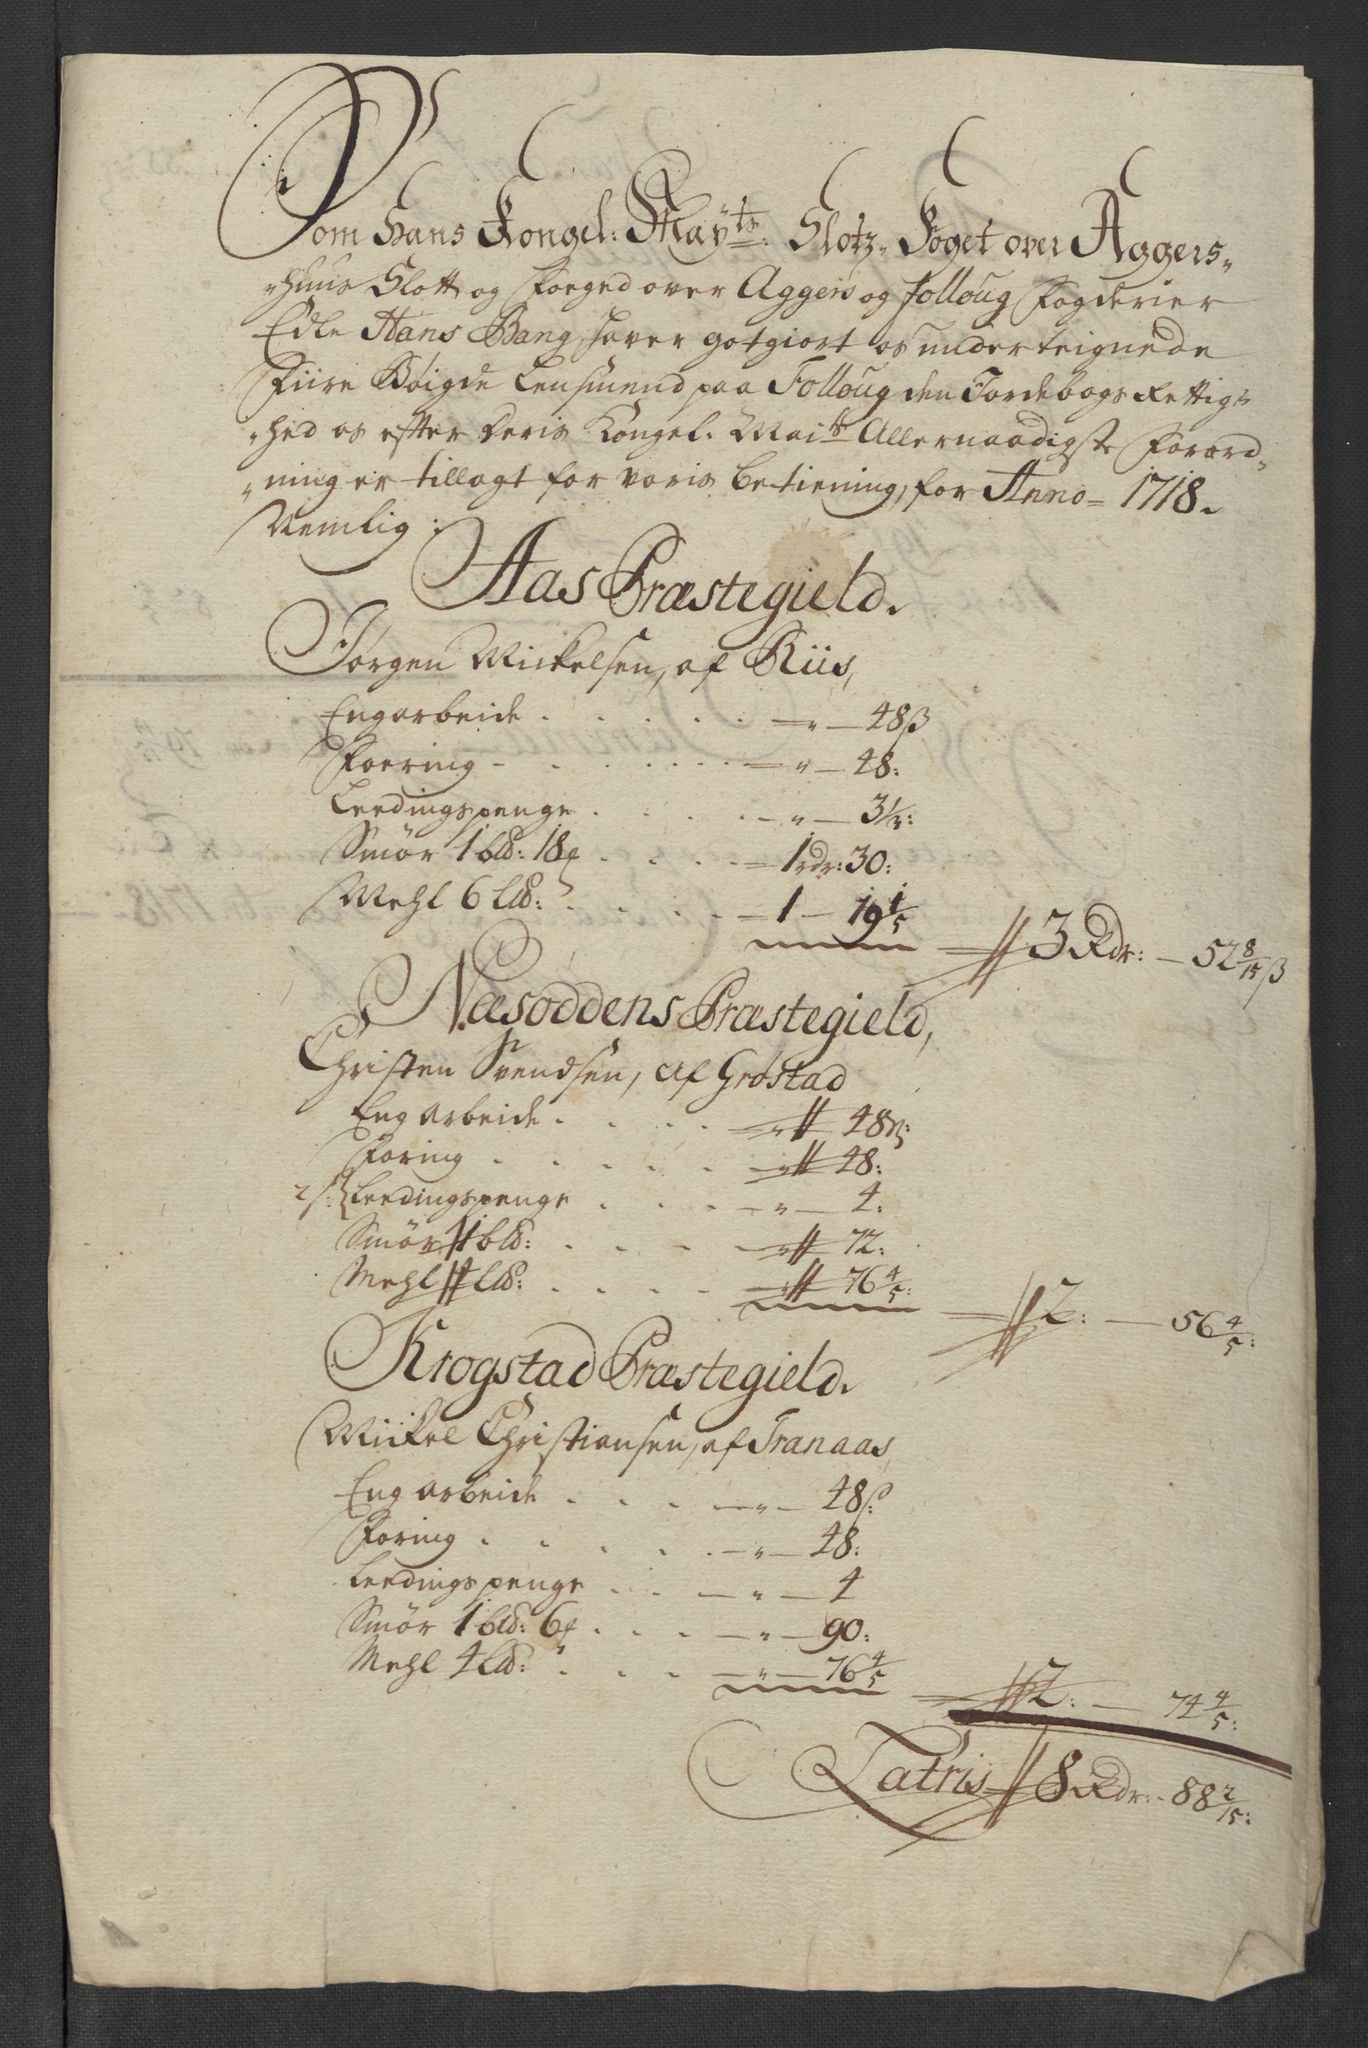 Som Hans Kongel: Mayts: Slotz-Foget over Aggers-
-huus Slott og Foeged over Aggers og Folloug Fogderier
Edle Hans Bang, haver gotgiort os underteignede
Fiire Bøigde Lensmend paa Folloug den Jordebogs Rettig-
-hed os efter Deris Kongel. Maits Allernaadigste Forord-
-ning er tillagt for voris betiening, for Anno- 1718.
Nemlig:
Aas Præstegield.
Jørgen Mickelsen, af Riis,
Engarbeide . . . . . — „ — 48 ß
Foering - . . . . . — „ — 48:
Leedingspenge . . . . — „ — 3 1/3:
Smør 1 bld: 18 . . . — 1 rdr: 30:
Mehl 6 lld: . . . . — 1 — 19 1/5
3 Rdr: — 52 8/15 ß
Næsoddens Præstegield,
Christen Svendsen, af Grøstad
Eng arbeide . . . . — „ — 48 ß:
Foring . . . . . — „ — 48:
Leedingspenge . . . — „ — 4:
Smør 1 bld: . . . . — „ — 72:
Mehl 4 lld: . . . . — „ — 76 4/5:
2: — 56 4/5:
Krogstad Præstegield.
Mickel Christiansen, af Tranaas,
Eng arbeide . . . — „ — 48 ß:
Foring . . . . . — „ — 48:
Leedingspenge . . . — „ — 4
Smør 1 bld: 6 . . . — „ — 90:
Mehl 4 lld: . . . — „ — 76 4/5
2: — 74 4/5:
Latris 8 Rdr: - 88 2/15: